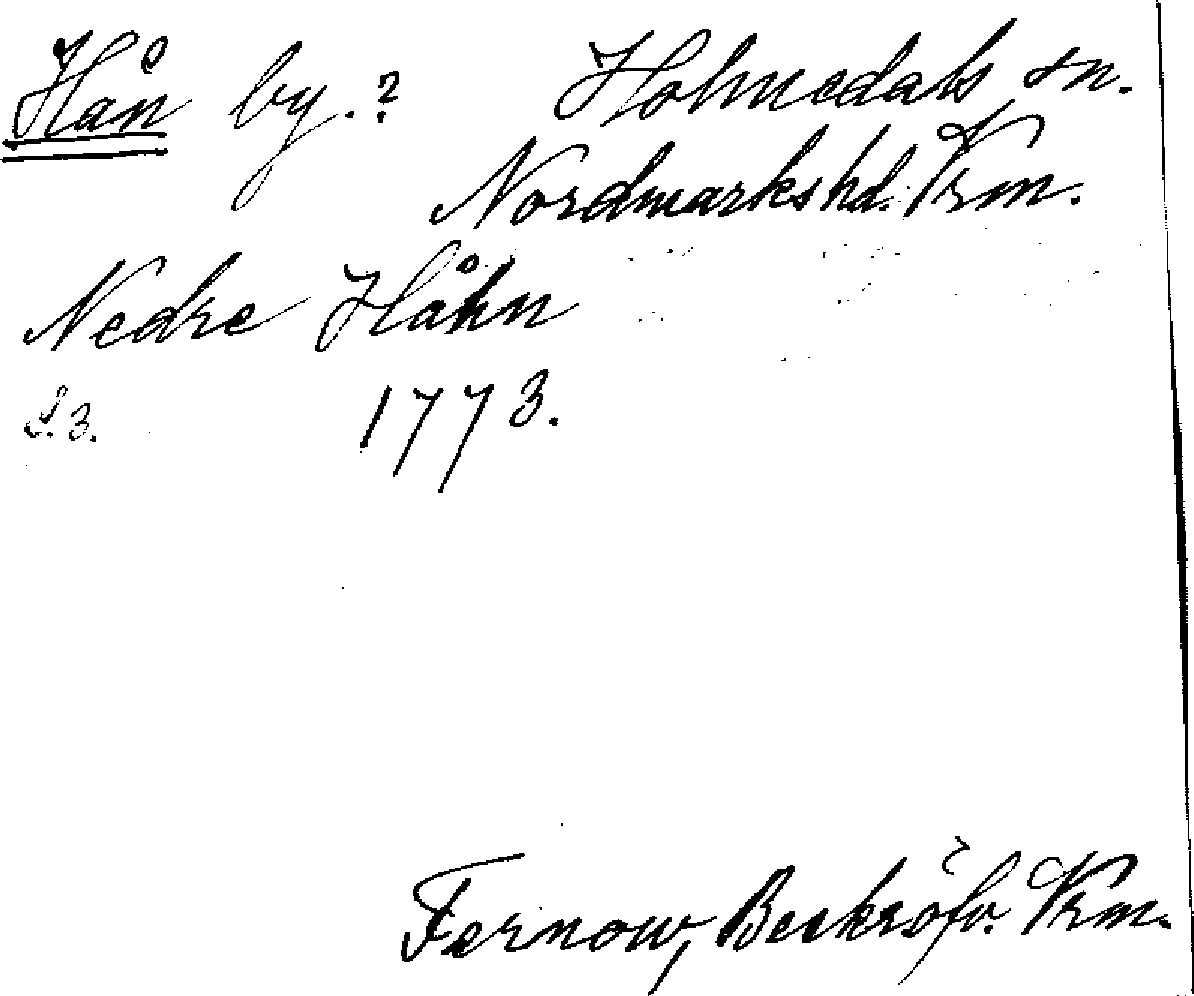 Hån by.? Holmedals sn.
Nordmarks hd. Vrm.
Nedre Håhn
S. 3. 1773.
Fernow, Beskr. öfv. Vrm.